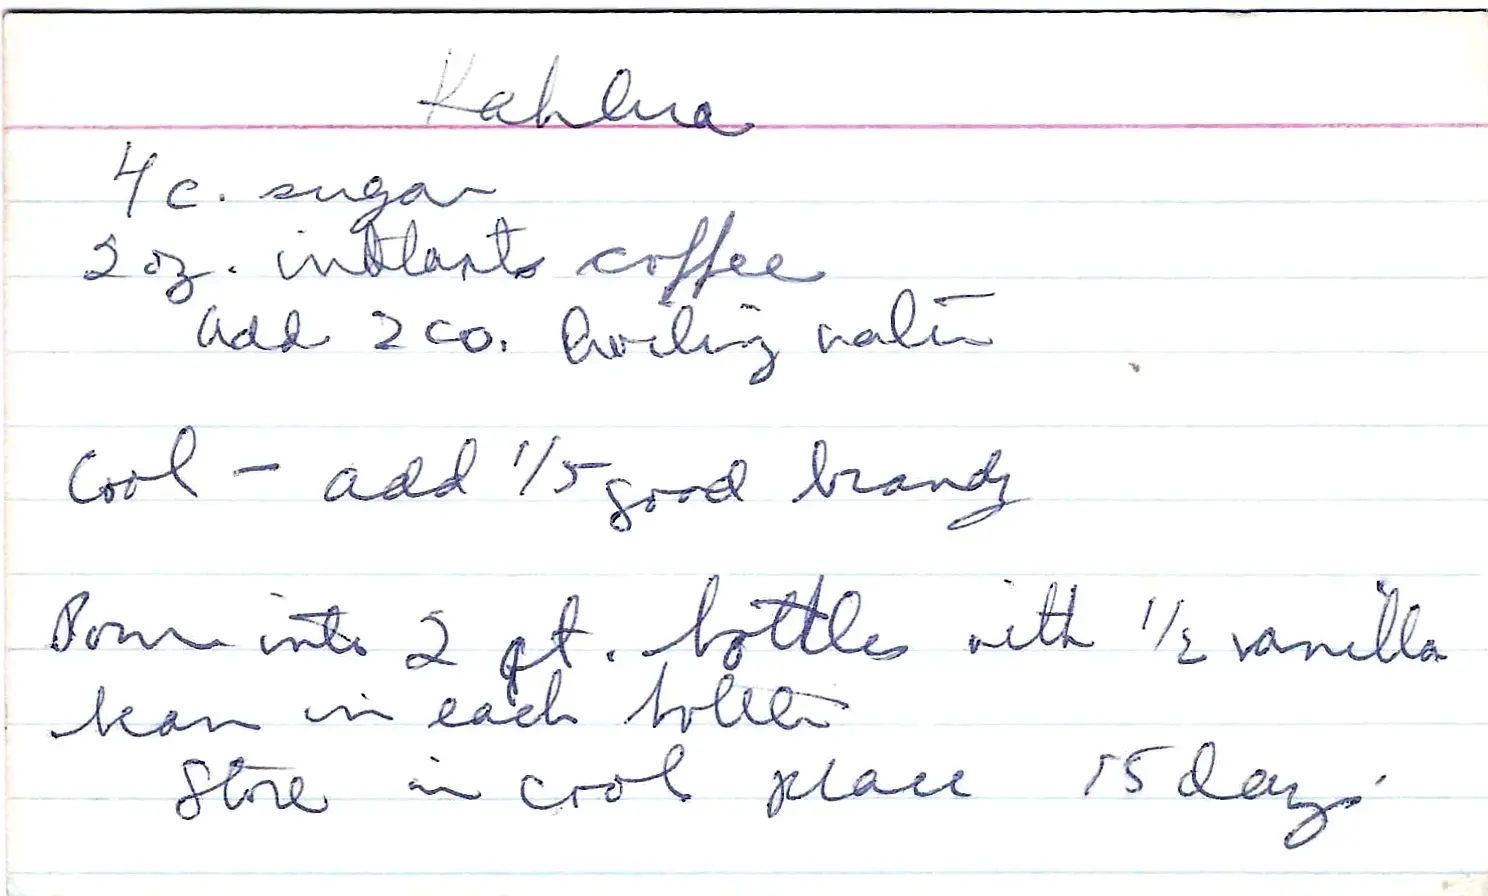 Kahlua
4 c. sugar
2 oz. instant coffee
add 2 co. boiling water
Cool - add 1/5 good brandy
Pour into 2 qt. bottles with 1/2 vanilla
bean in each bottle
Store in cool place 15 days.